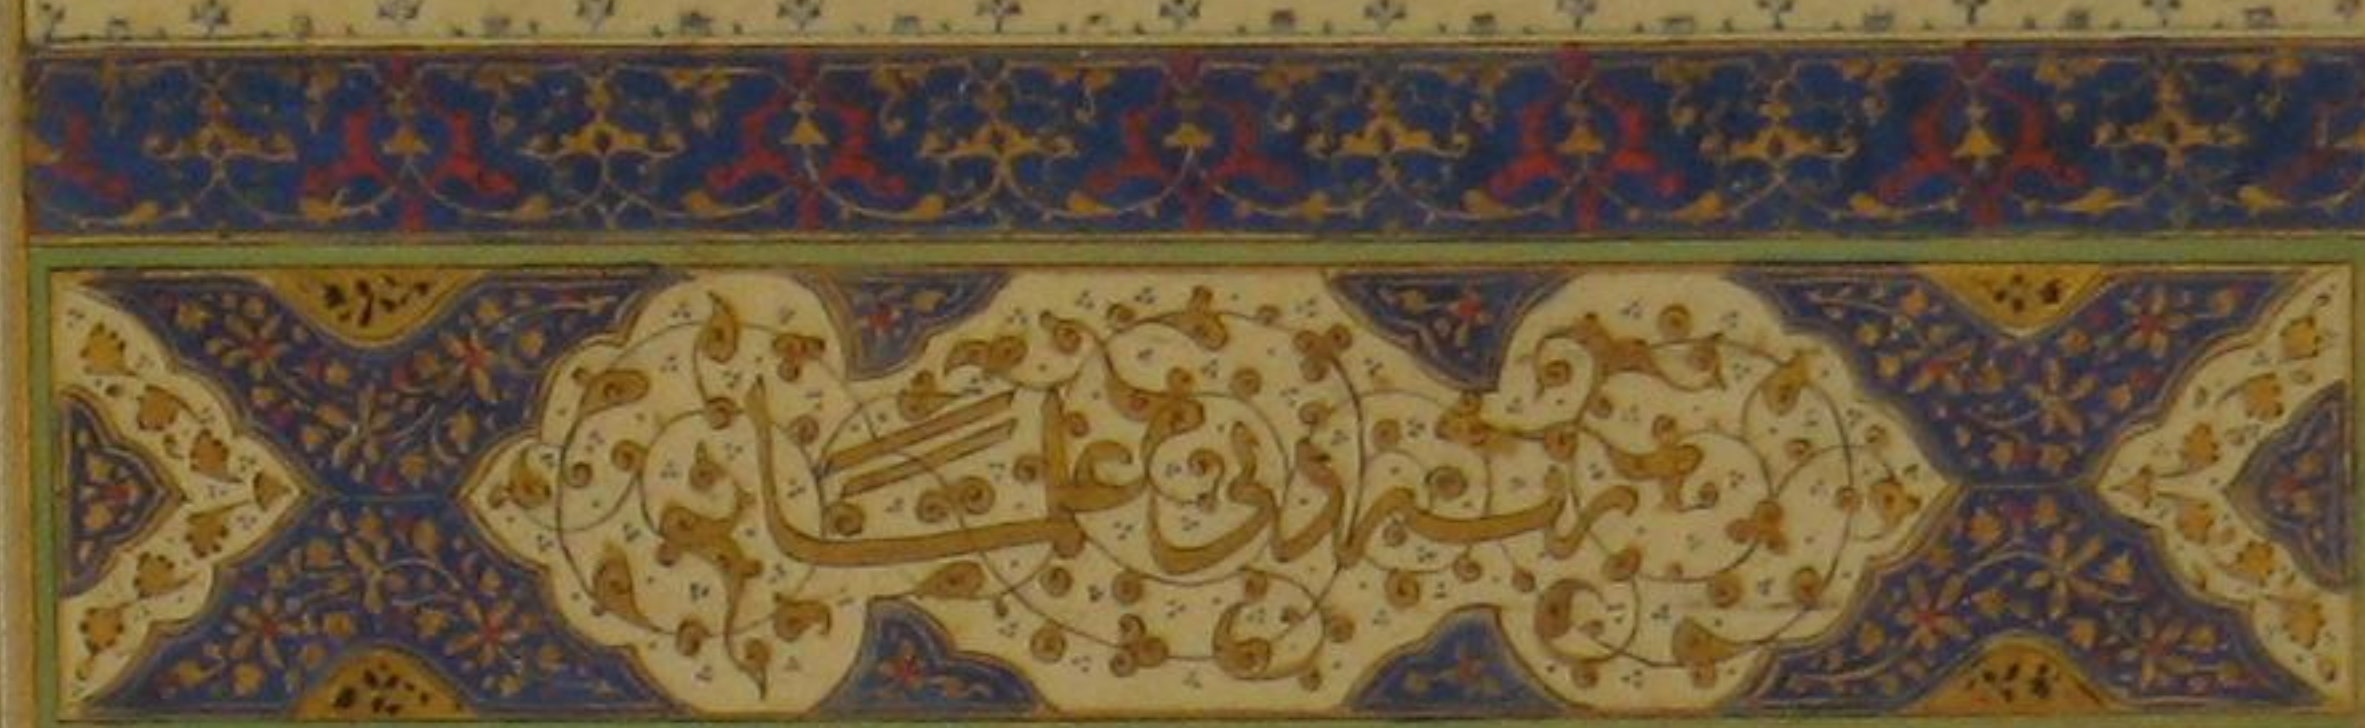 رب زدنی علماً